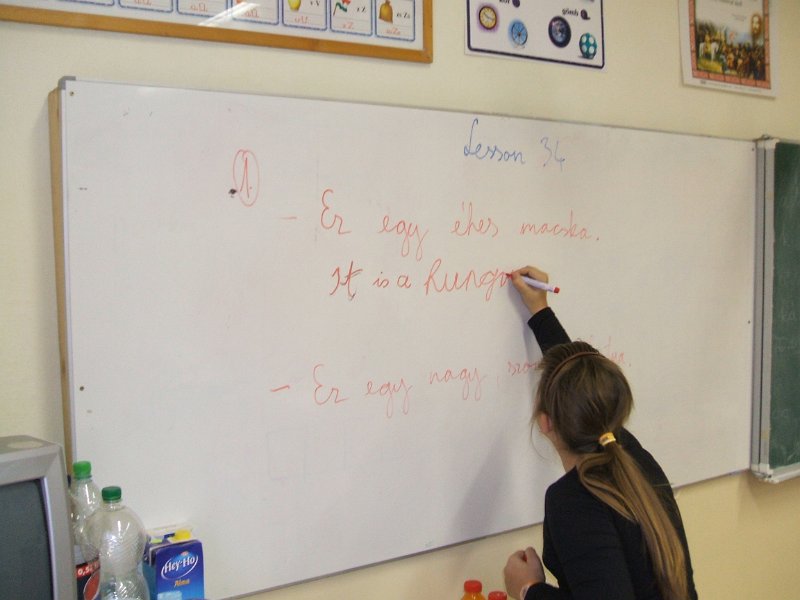 gömb
Lesson 34
1.
– Ez egy éhes macska.
It is a hung
– Ez egy nagy,
Hey-Ho
Alma
0,5